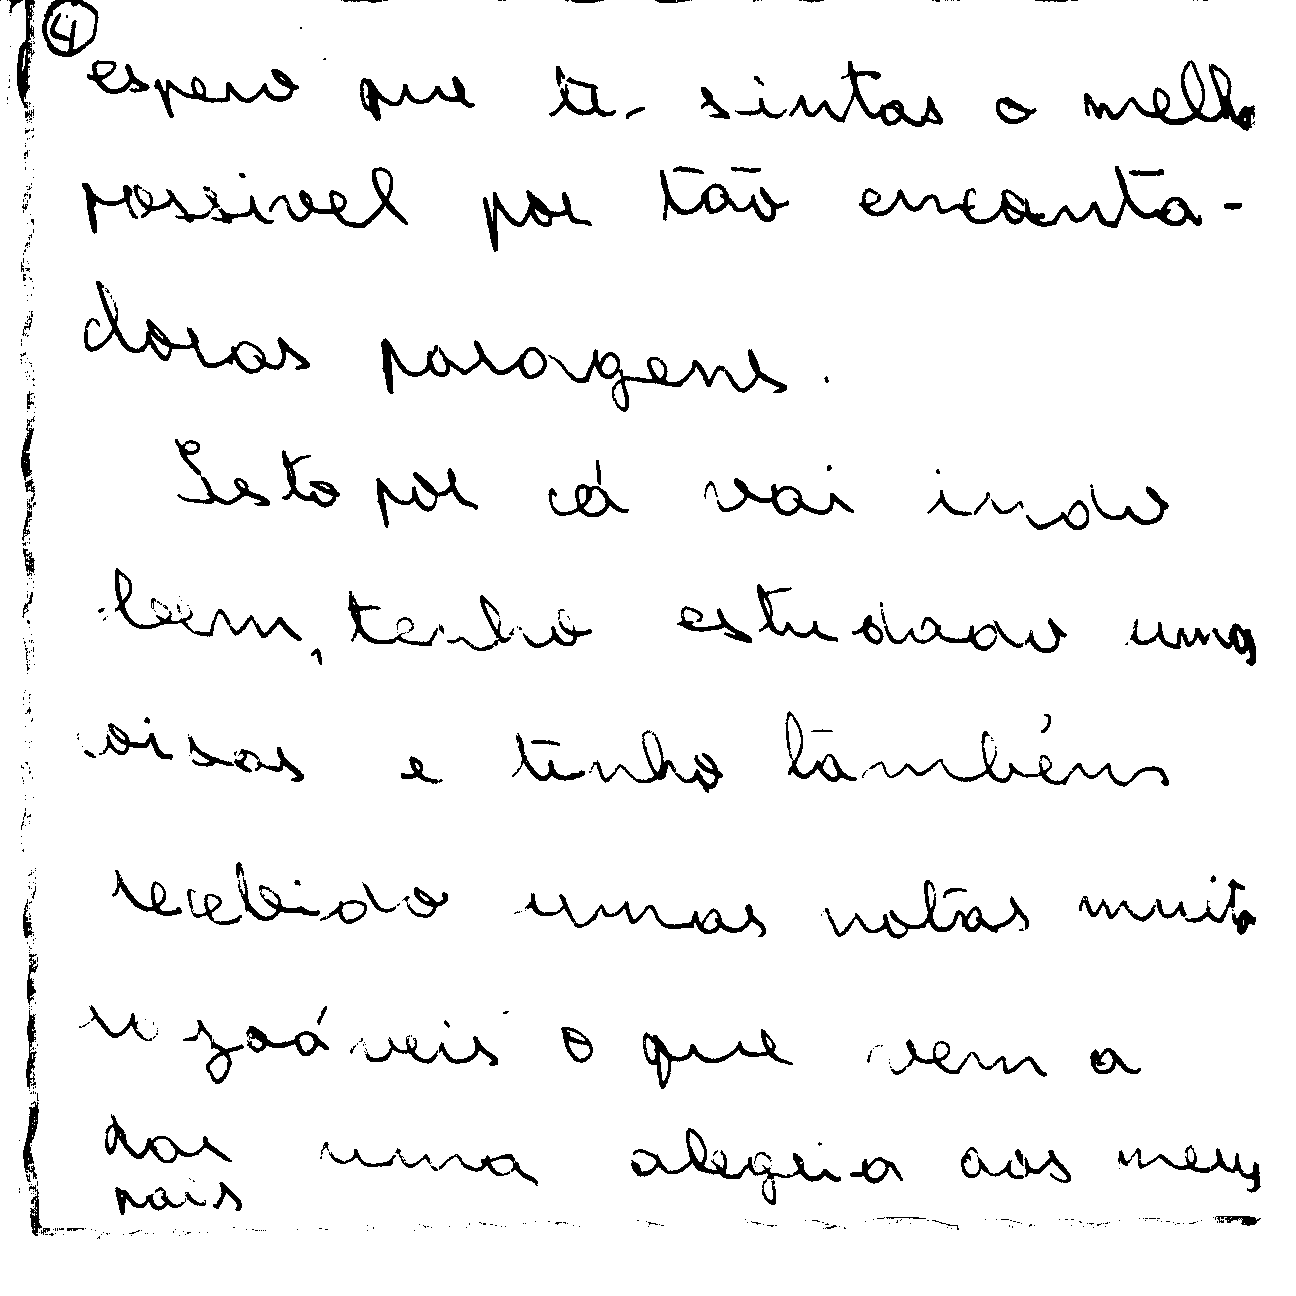 4
espero que te sintas o melho
possivel por tão encanta-
doras paragens.
Isto por cá vai indo
bem, tenho estudado umas
coisas e tenho também
recebido umas notas muito
razoáveis o que vem a
dar uma alegria aos meus
pais